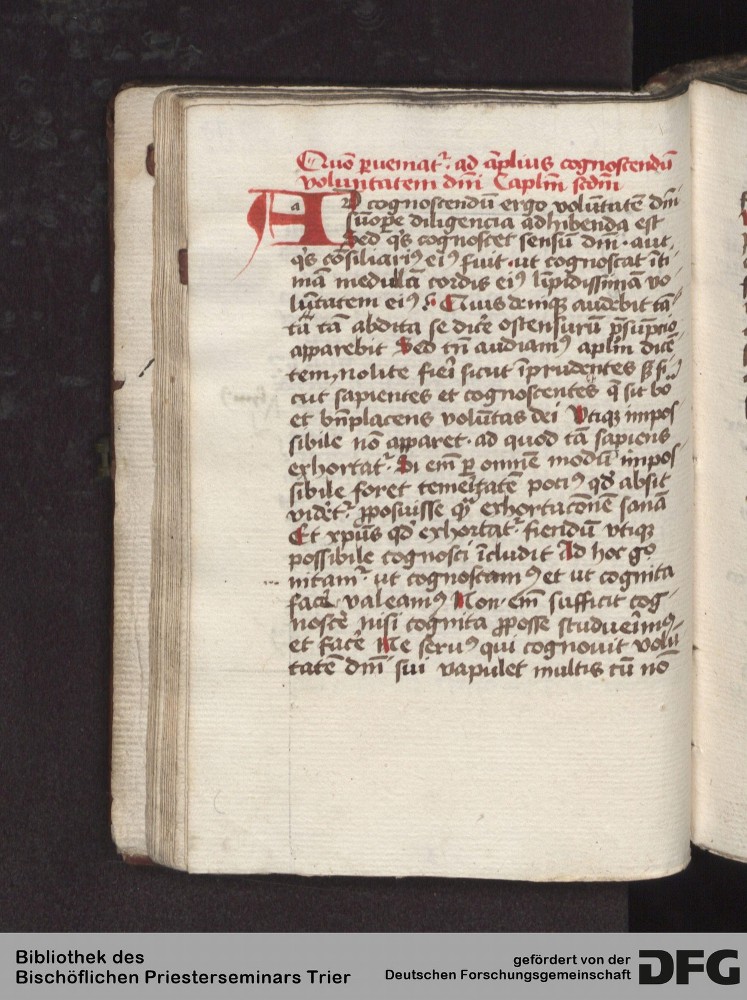 Quō ꝑuemat᷑ ad āplius cognoscendū
voluntatem dn̄i Caplm̄ scdm̄
AD cognoscendū ergo volūtatē dn̄i
suope diligencia adhibenda est
Sed qͥs cognoscet sensū dn̄i · aut
qͥs cōsiliariꝰ eiꝰ fuit · ut cognoscat īti
mā medullā cordis eiꝰ līpidissimā vo
lūtatem eiꝰ Quis deniqꝫ audebit tā
tā abdita se dice ostensurū p̄sūpcio
apparebit Sed tn̄ audiamꝰ aplm̄ dicē
tem, nolite fieri sicut īprudentes sꝫ si
cut sapientes et cognoscentes q̄ sit bo
et bn̄placens volūtas dei Vtiqꝫ impos
sibile nō apparet · ad quod tā sapiens
exhortat᷑ Si em̄ ꝑ omnē modū impos
sibile foret temeitatē pociꝰ qd̄ absit
videt᷑ ꝓposuisse qᷓ exhortacōnē sanā
Et xpūs qd̄ exhortat᷑ fiendū vtiqꝫ
possibile cognosci īcludit Ad hoc gͦ
nitam᷑ ut cognoscamꝰ et ut cognita
face valeamꝰ Non em̄ sufficit cog
nosce nisi cognita ꝓposse studueīmꝰ
et face Ne seruꝰ qui cognouit volū
tatē dn̄i sui vapulet multis cū nō
Bibliothek des
Bischöflichen Priesterseminars Trier
gefördert von der
Deutschen Forschungsgemeinschaft
DFG